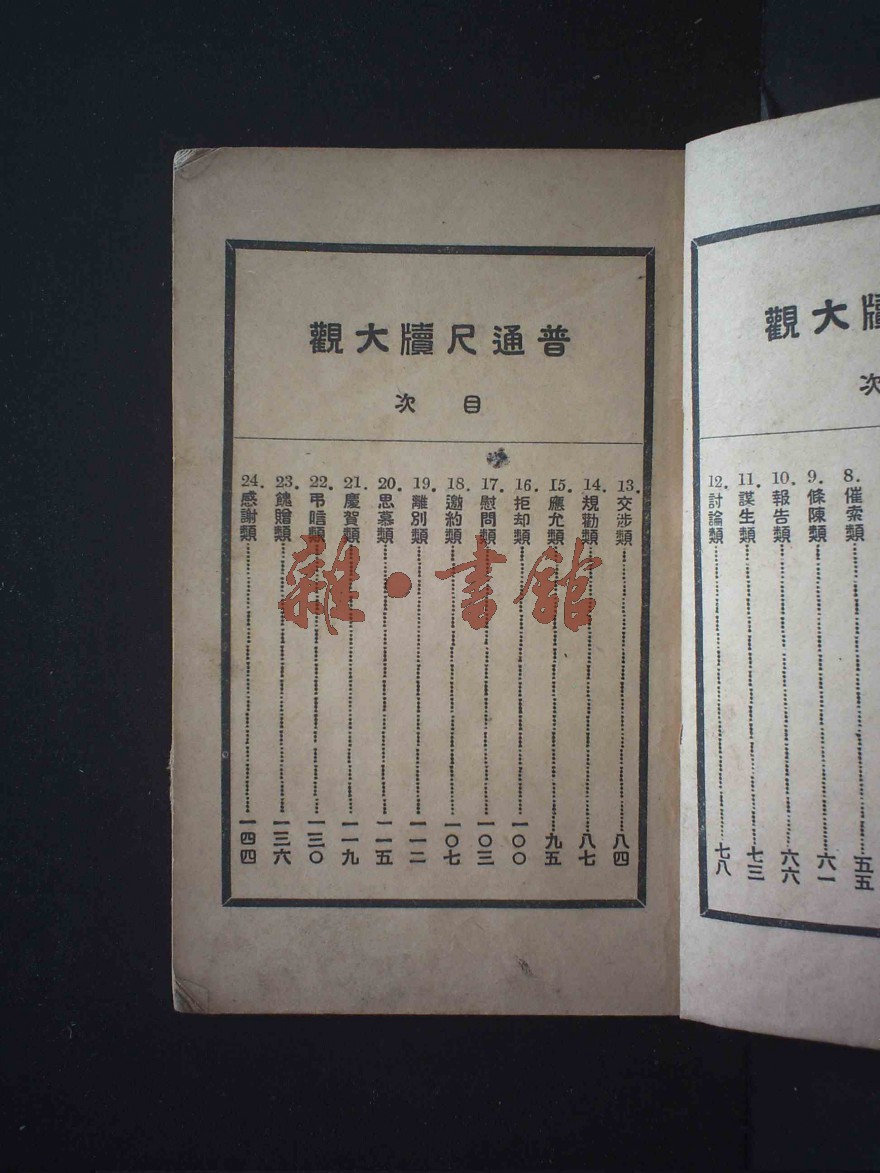 大觀
次
8. 催索類……五五
9. 條陳類……六一
10. 報告類……六六
11. 謀生類……七三
12. 討論類……七八
普通尺牘大觀
目次
13. 交涉類……八四
14. 規勸類……八七
15. 應允類……九五
16. 拒却類……一〇〇
17. 慰問類……一〇三
18. 邀約類……一〇七
19. 離別類……一一二
20. 思慕類……一一五
21. 慶賀類……一一九
22. 弔唁類……一三〇
23. 餽贈類……一三六
24. 感謝類……一四四
雜·書館